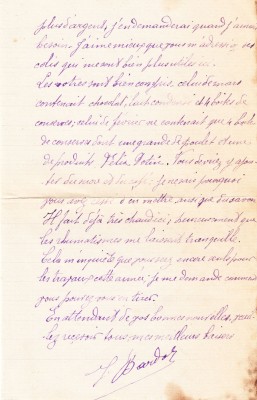 plus d'argent, j'en demanderai quand j'aurai
besoin. J'aime mieux que vous m'adressiez des
colis qui me sont bien plus utiles ici.
Les votres sont bien compris, celui de mars
contenant chocolat, lait condensé et 4 boîtes de
conserves; celui de février ne contenant que 4 boîtes
de conserves dont une grande de poulet et une
de produits Félix Potin. Vous pouvez y ajouter
des et du café; je ne sais pourquoi
vous en mettre, ainsi que du savon.
Il fait déjà très chaud ici; heureusement que
les rhumatismes me laissent tranquille.
Cela m'inquiète que vous soyez encore seuls pour
les travaux cette année, je me demande comment
vous pouvez vous en tirer.
En attendant de vos bonnes nouvelles, veuil-
lez recevoir tous, mes meilleurs baisers
Bardot